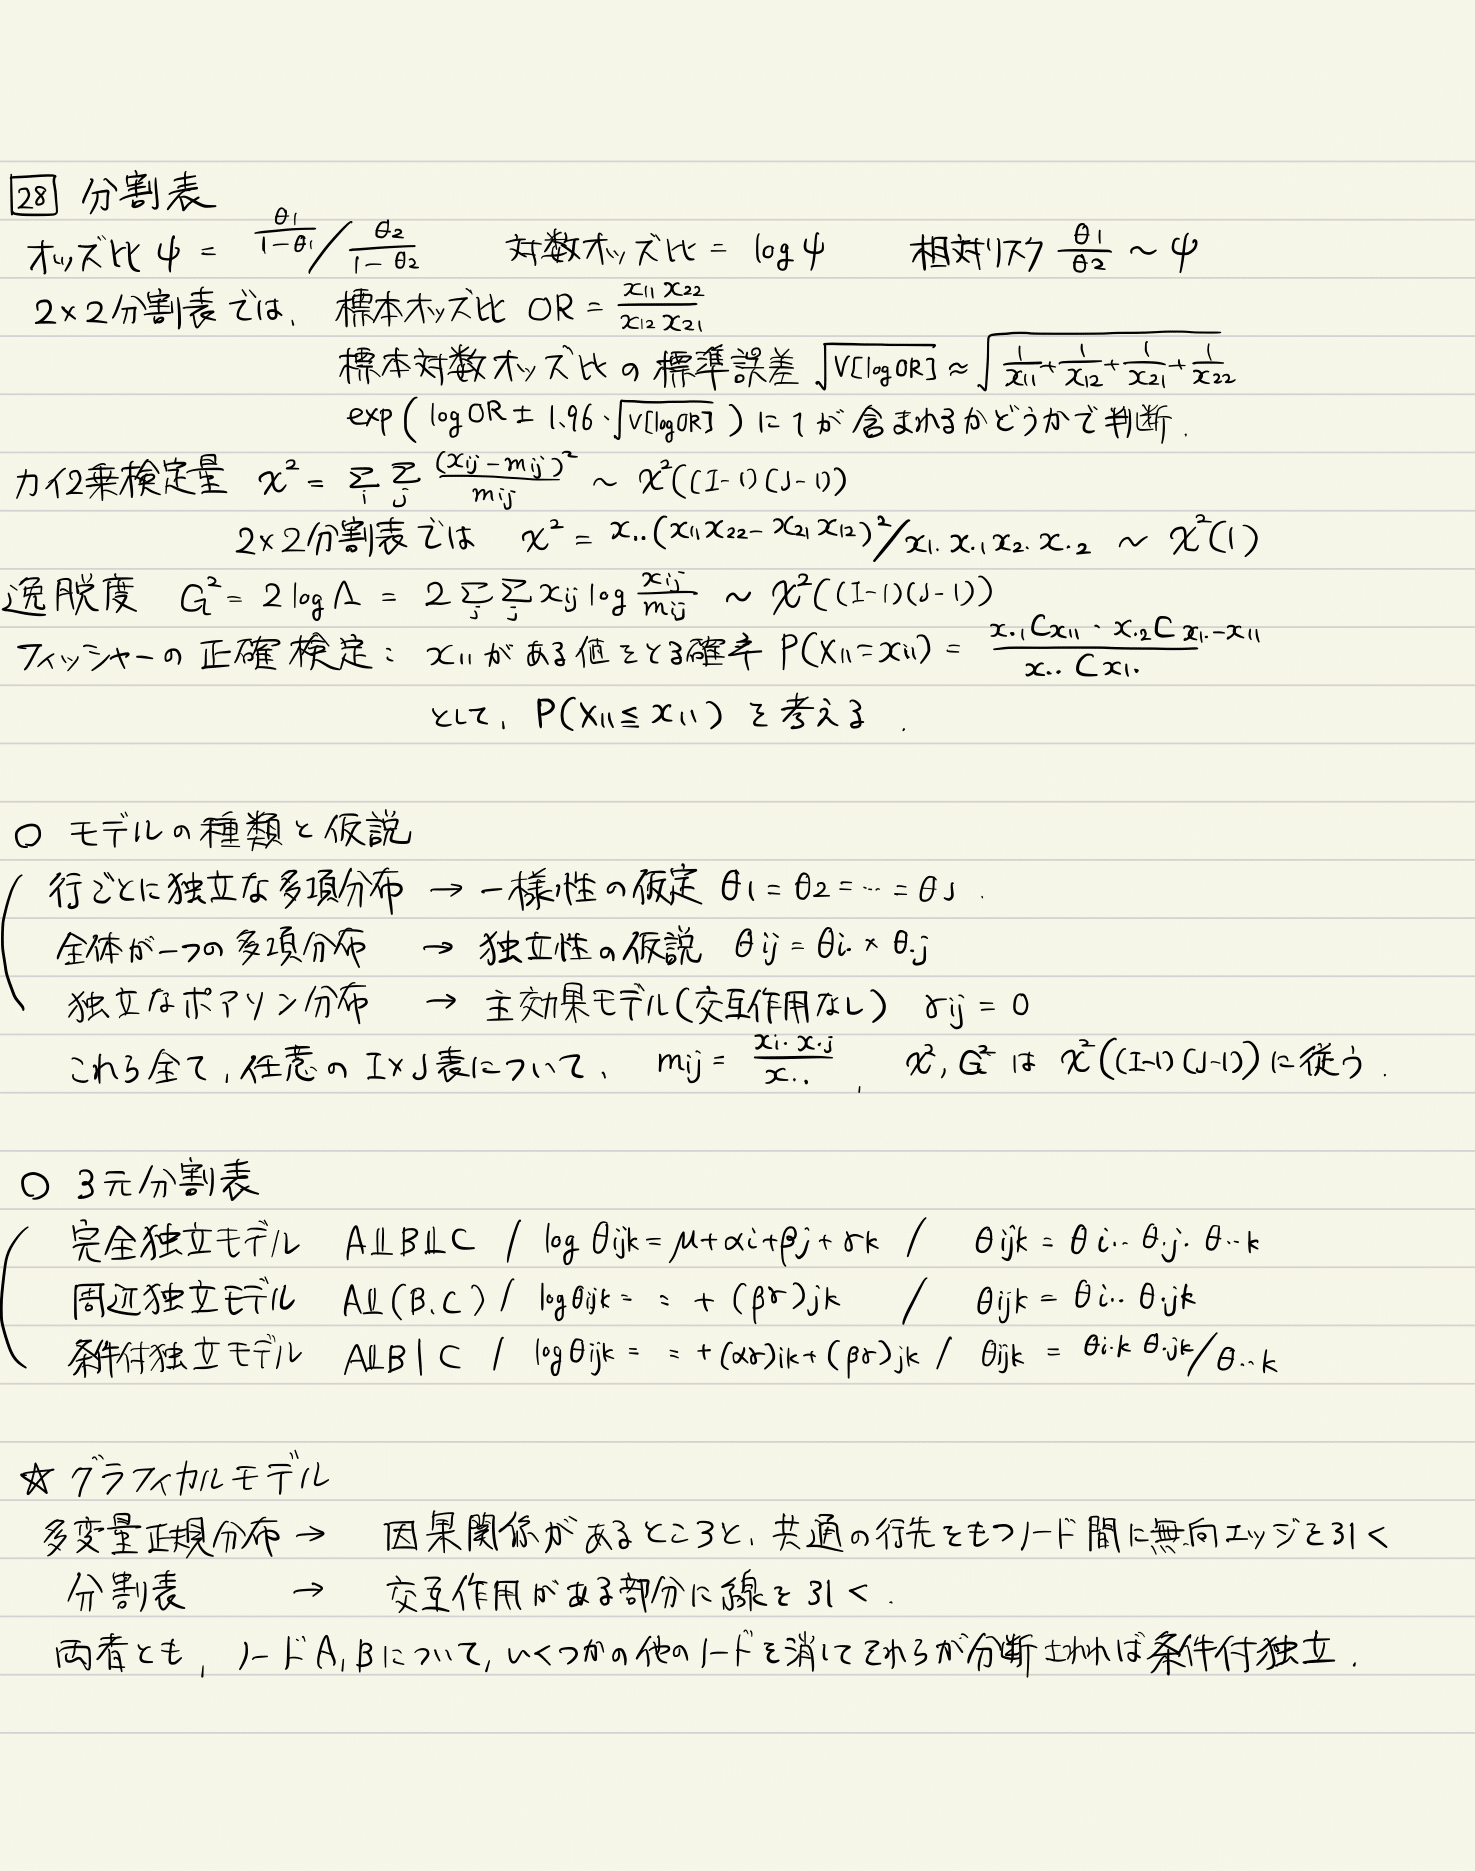 28 分割表
オッズ比 ψ = θ1/(1-θ1) / θ2/(1-θ2) 対数オッズ比 = log ψ 相対リスク θ1/θ2 ~ ψ
2×2分割表では、標本オッズ比 OR = x11 x22 / x12 x21
標本対数オッズ比の標準誤差 √V[log OR] ≈ √(1/x11 + 1/x12 + 1/x21 + 1/x22)
exp(log OR ± 1.96・√V[log OR]) に1が含まれるかどうかで判断.
カイ2乗検定量 χ² = Σi Σj (xij - mij)² / mij ~ χ²((I-1)(J-1))
2×2分割表では χ² = x..(x11 x22 - x21 x12)² / x1. x.1 x2. x.2 ~ χ²(1)
逸脱度 G² = 2 log Λ = 2 Σj Σj xij log xij/mij ~ χ²((I-1)(J-1))
フィッシャーの正確検定: x11がある値をとる確率 P(X11=x11) = x.1Cx11 · x.2Cx1.-x11 / x..Cx1.
として、P(X11≦x11) を考える.
○ モデルの種類と仮説
行ごとに独立な多項分布 → 一様性の仮定 θ1 = θ2 = … = θJ.
全体が一つの多項分布 → 独立性の仮説 θij = θi. × θ.j
独立なポアソン分布 → 主効果モデル(交互作用なし) γij = 0
これら全て, 任意の I×J表について、 mij = xi. x.j / x.. , χ², G² は χ²((I-1)(J-1))に従う.
○ 3元分割表
完全独立モデル A⫫B⫫C / log θijk = μ+αi+βj+γk / θijk = θi.. θ.j. θ..k
周辺独立モデル A⫫(B.C) / log θijk = 〃 + (βγ)jk / θijk = θi.. θ.jk
条件付独立モデル A⫫B|C / log θijk = 〃 + (αγ)ik + (βγ)jk / θijk = θi.k θ.jk / θ..k
☆ グラフィカルモデル
多変量正規分布 → 因果関係があるところと、共通の行先をもつノード間に無向エッジを引く
分割表 → 交互作用がある部分に線を引く.
両者とも, ノードA,Bについて, いくつかの他のノードを消してそれらが分断されれば条件付独立.